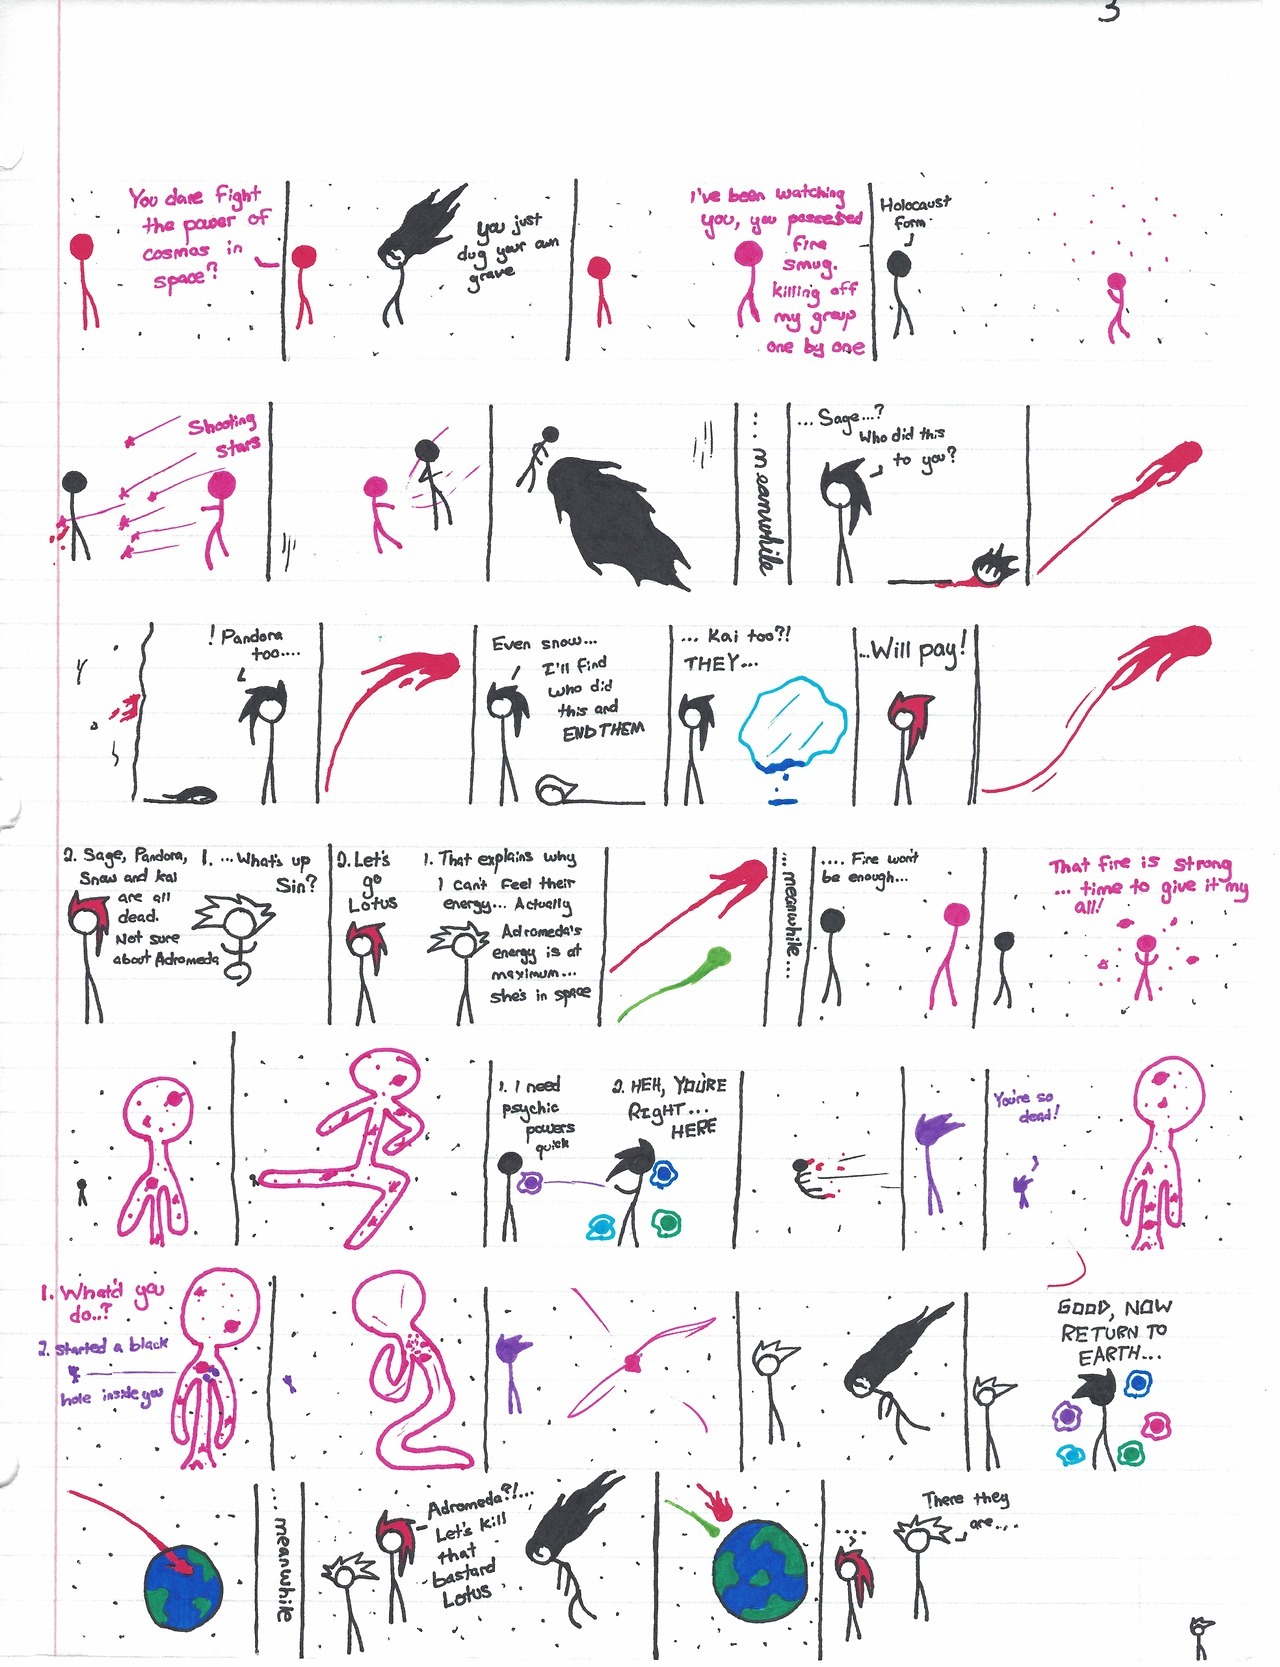 3
You dare fight
the power of
cosmos in
space?
You just
dug your own
grave
I've been watching
you, you possessed
fire
smug.
killing off
my group
one by one
Holocaust
form
Shooting
stars
...meanwhile
...Sage...?
Who did this
to you?
! Pandora
too....
Even snow...
I'll find
who did
this and
END THEM
... Kai too?!
THEY...
...Will pay!
2. Sage, Pandora,
Snow and Kai
are all
dead.
Not sure
about Adromeda
1. ...What's up
Sin?
2. Let's
go
Lotus
1. That explains why
I can't feel their
energy... Actually
Adromeda's
energy is at
maximum...
she's in space
...meanwhile...
.... Fire won't
be enough...
That fire is strong
... time to give it my
all!
1. I need
psychic
powers
quick
2. HEH, YOU'RE
RIGHT...
HERE
You're so
dead!
1. What'd you
do..?
2. Started a black
hole inside you
GOOD, NOW
RETURN TO
EARTH...
...meanwhile
Adromeda?!...
Let's kill
that
bastard
Lotus
.....
There they
are....